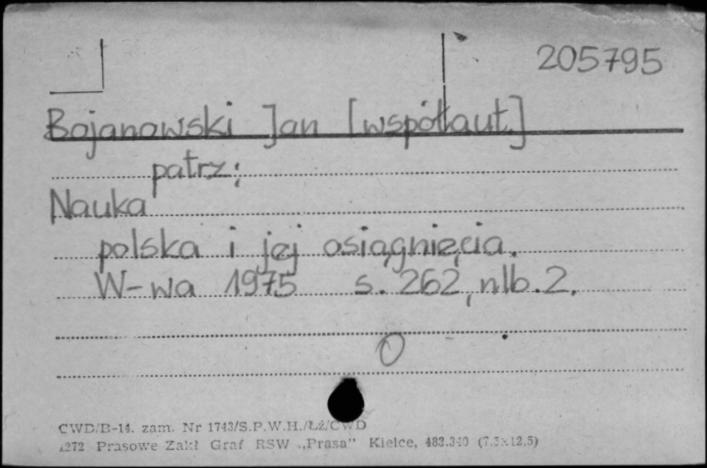 205795
Bojanowski Jan [współaut.]
patrz:
Nauka
polska i jej osiągnięcia.
W-wa 1975 s. 262, nlb. 2.
CWD/B-14. zam. Nr 1743/S.P.W.H./Łź/CWD
1272 Prasowe Zakł Graf RSW „Prasa" Kielce, 483.340 (7.5x12.5)